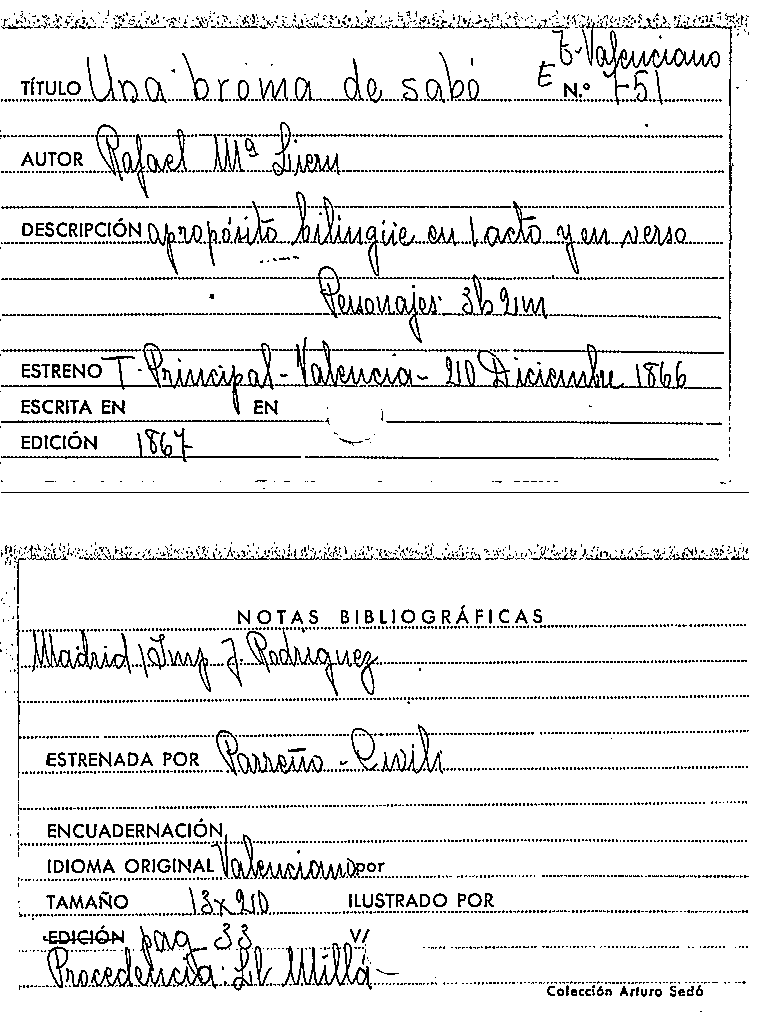 T-Valenciano
TÍTULO Una broma de sabó E N.º 7-51
AUTOR Rafael Mª Liern
DESCRIPCIÓN apropósito bilingüe en 1 acto y en verso
Personajes: 3h 2m
ESTRENO T. Principal - Valencia - 20 Diciembre 1866
ESCRITA EN EN
EDICIÓN 1867
NOTAS BIBLIOGRÁFICAS
Madrid / Imp J. Rodriguez
ESTRENADA POR Parreño - Civili
ENCUADERNACIÓN
IDIOMA ORIGINAL Valenciano por
TAMAÑO 13x20 ILUSTRADO POR
EDICIÓN pag 33 V/
Procedencia: Lib Millá -
Colección Arturo Sedó